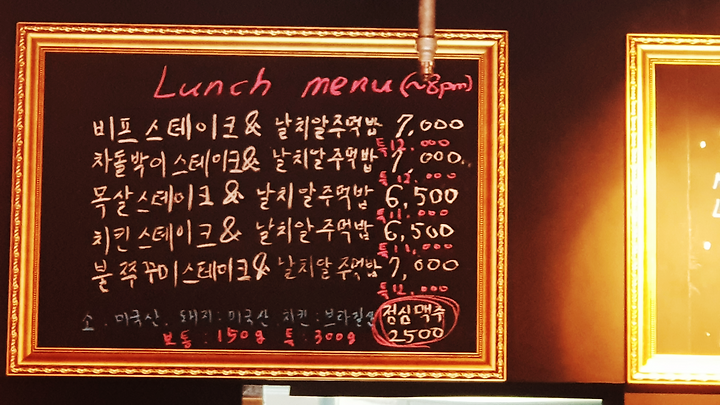 Lunch menu(~8pm)
비프스테이크& 날치알주먹밥 7,000
특12.000
차돌박이스테이크& 날치알주먹밥 7,000.
특12.000
목살스테이크& 날치알주먹밥 6,500
특11.000
치킨스테이크& 날치알주먹밥 6,500
특11,000
불쭈꾸미스테이크& 날치알주먹밥 7,000
특12.000
소.미국산.돼지:미국산.치킨:브라질산
점심맥주
보통:150g 특:300g
2500